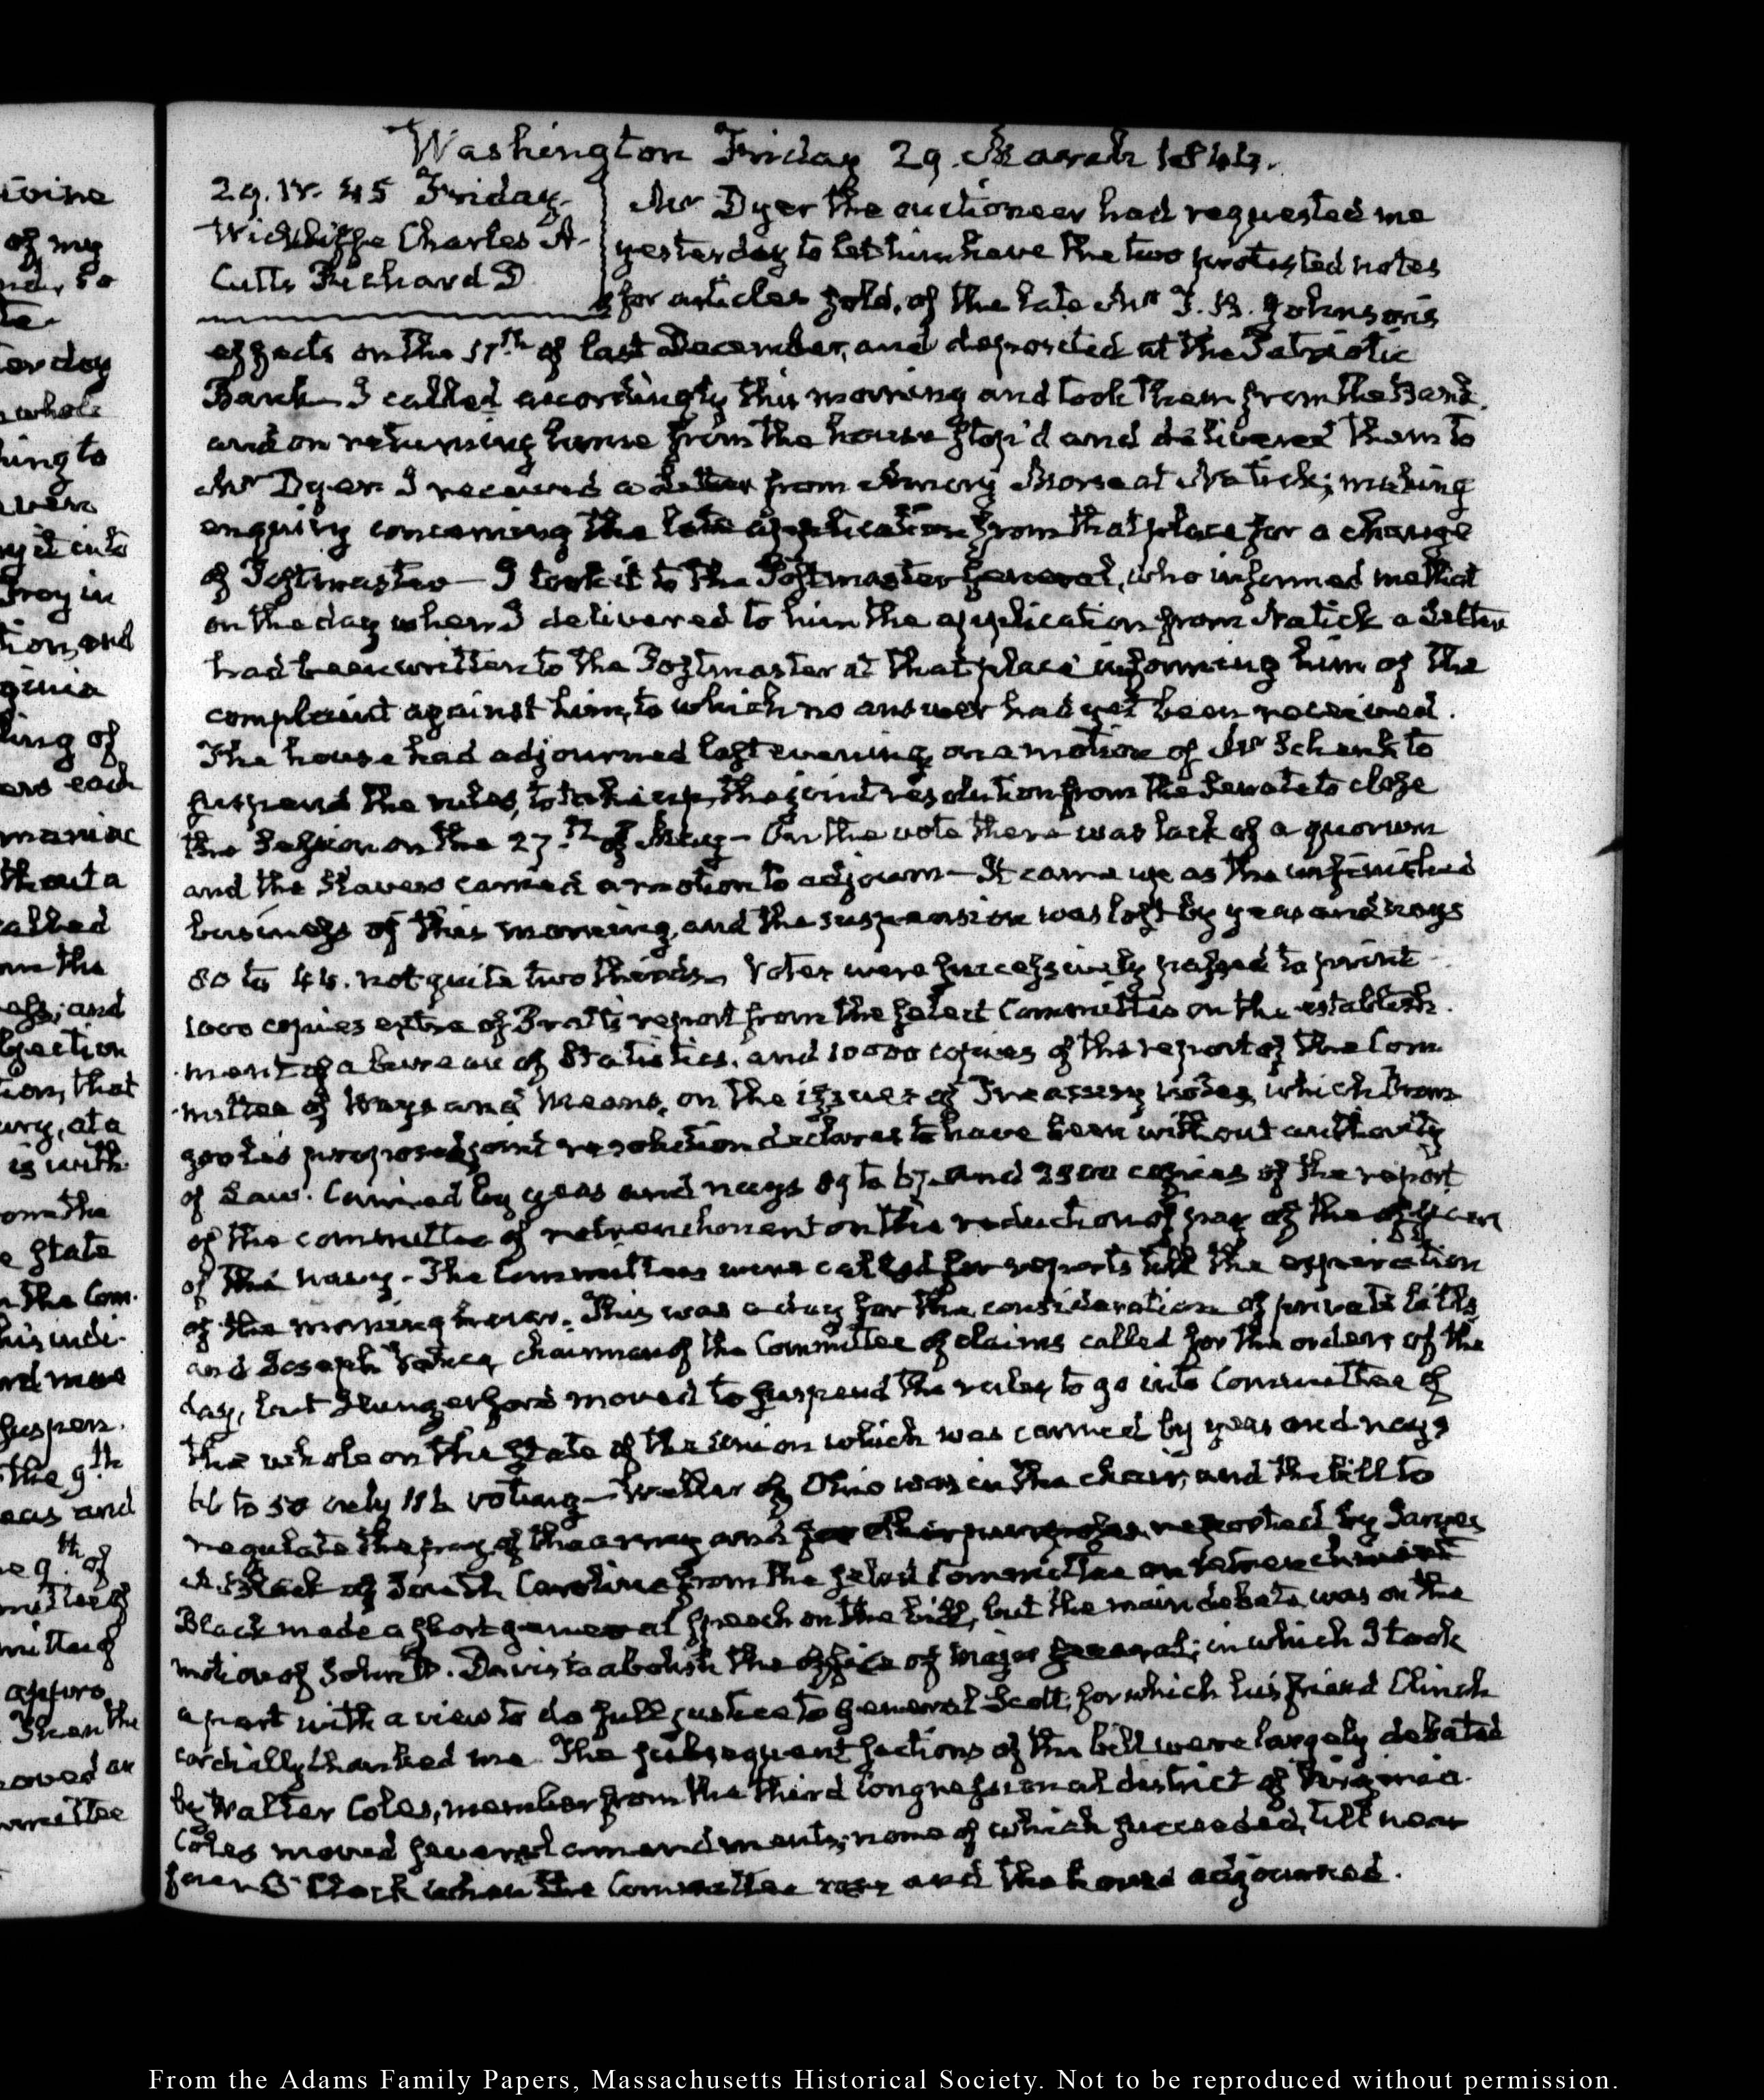 Washington Friday 29. March 1844.
29. IV. 45 Friday.
Wickliffe Charles A.
Cutts Richard D
Mr Dyer the auctioneer had requested me
yesterday to let him have the two protested notes
for articles sold, of the late Mr T. B. Johnson's
effects on the of last December, and deposited at the Patriotic
Bank— I called accordingly this morning and took them from the Bank,
and on returning home from the house stop'd and delivered them to
Mr Dyer. I received a Letter from Morse at Natick; making
enquiry concerning the late application from that place for a change
of Postmaster— I took it to the Postmaster General, who informed me that
on the day when I delivered to him the application from Natick a Letter
had been written to the Postmaster at that place informing him of the
complaint against him, to which no answer had yet been received.
The house had adjourned last evening, on a motion of Mr Schenk to
suspend the rules, to take up, the joint resolution from the Senate to close
the Session on the 27th of May— On the vote there was lack of a quorum
and the Slavers carried a motion to adjourn— It came up as the unfinished
business of this morning, and the suspension was lost by yeas and nays
80 to 44. not quite two thirds. Votes were successively passed to print
1000 copies extra of Pratt's report from the select Committee on the establish-
ment of a bureau of Statistics. and 10000 copies of the report of the Com-
mittee of Ways and Means, on the issues of Treasury notes, which Drom-
goole's proposed joint resolution declares to have been without authority
of Law. Carried by yeas and nays 89 to 67. and 2500 copies of the report
of the committee of retrenchment on the reduction of pay of the officers
of the navy. The Committees were called for reports till the expiration
of the morning hour. This was a day for the consideration of private bills
and Joseph Vance, chairman of the Committee of claims called for the orders of the
day, but Hungerford moved to suspend the rules, to go into Committee of
the whole on the State of the Union which was carried by yeas and nays
66 to 50 only 116 voting— Weller of Ohio was in the chair, and the bill to
regulate the pay of the army and for other purposes, reported by James
A. Black of South Carolina from the select Committee on retrenchment
Black made a short general speech on the bill, but the main debate was on the
motion of John W. Davis to abolish the office of Major General; in which I took
a part with a view to do full justice to General Scott, for which his friend Clinch
cordially thanked me. The subsequent sections of the bill were largely debated
by Walter Coles, member from the third Congressional district of Virginia.
Coles moved several amendments; none of which succeeded, till near
four O'Clock when the Committee rose and the house adjourned.
From the Adams Family Papers, Massachusetts Historical Society. Not to be reproduced without permission.